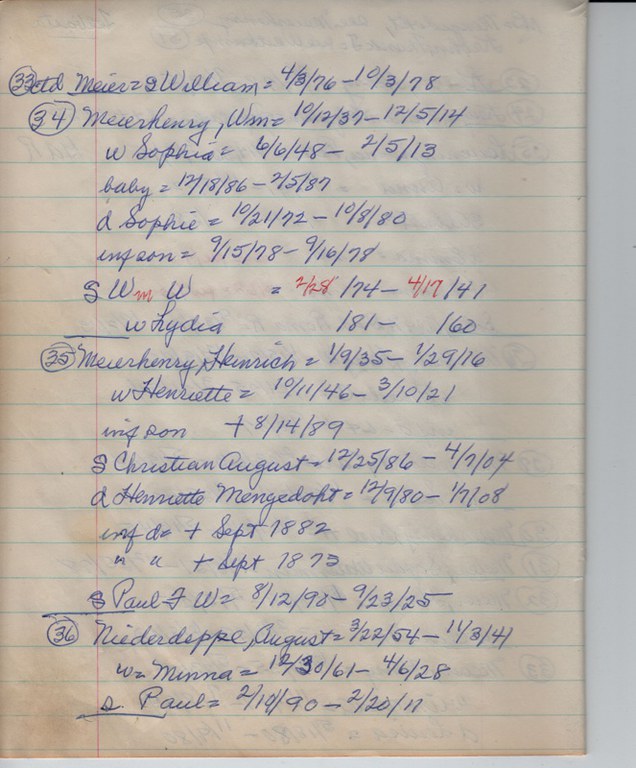 (33) ctd Meier = S William = 4/3/76 - 10/3/78
(34) Meierhenry, Wm = 10/12/37 - 12/5/14
w Sophia = 6/6/48 - 2/5/13
baby = 12/18/86 - 2/5/87
d Sophie = 10/21/72 - 10/8/80
inf son = 9/15/78 - 9/16/78
S Wm W = 2/28/74 - 4/17/41
w Lydia /81 - /60
(35) Meierhenry, Heinrich = 1/9/35 - 1/29/16
w Henriette = 10/11/46 - 3/10/21
inf son + 8/14/89
S Christian August = 12/25/86 - 4/7/04
d Henriette Mengedoht = 12/9/80 - 1/7/08
inf d = + Sept 1882
" " + Sept 1873
S Paul F W = 8/12/90 - 9/23/25
(36) Niederdeppe, August = 3/22/54 - 11/3/41
w = Minna = 12/30/61 - 4/6/28
s. Paul = 2/19/90 - 2/20/11